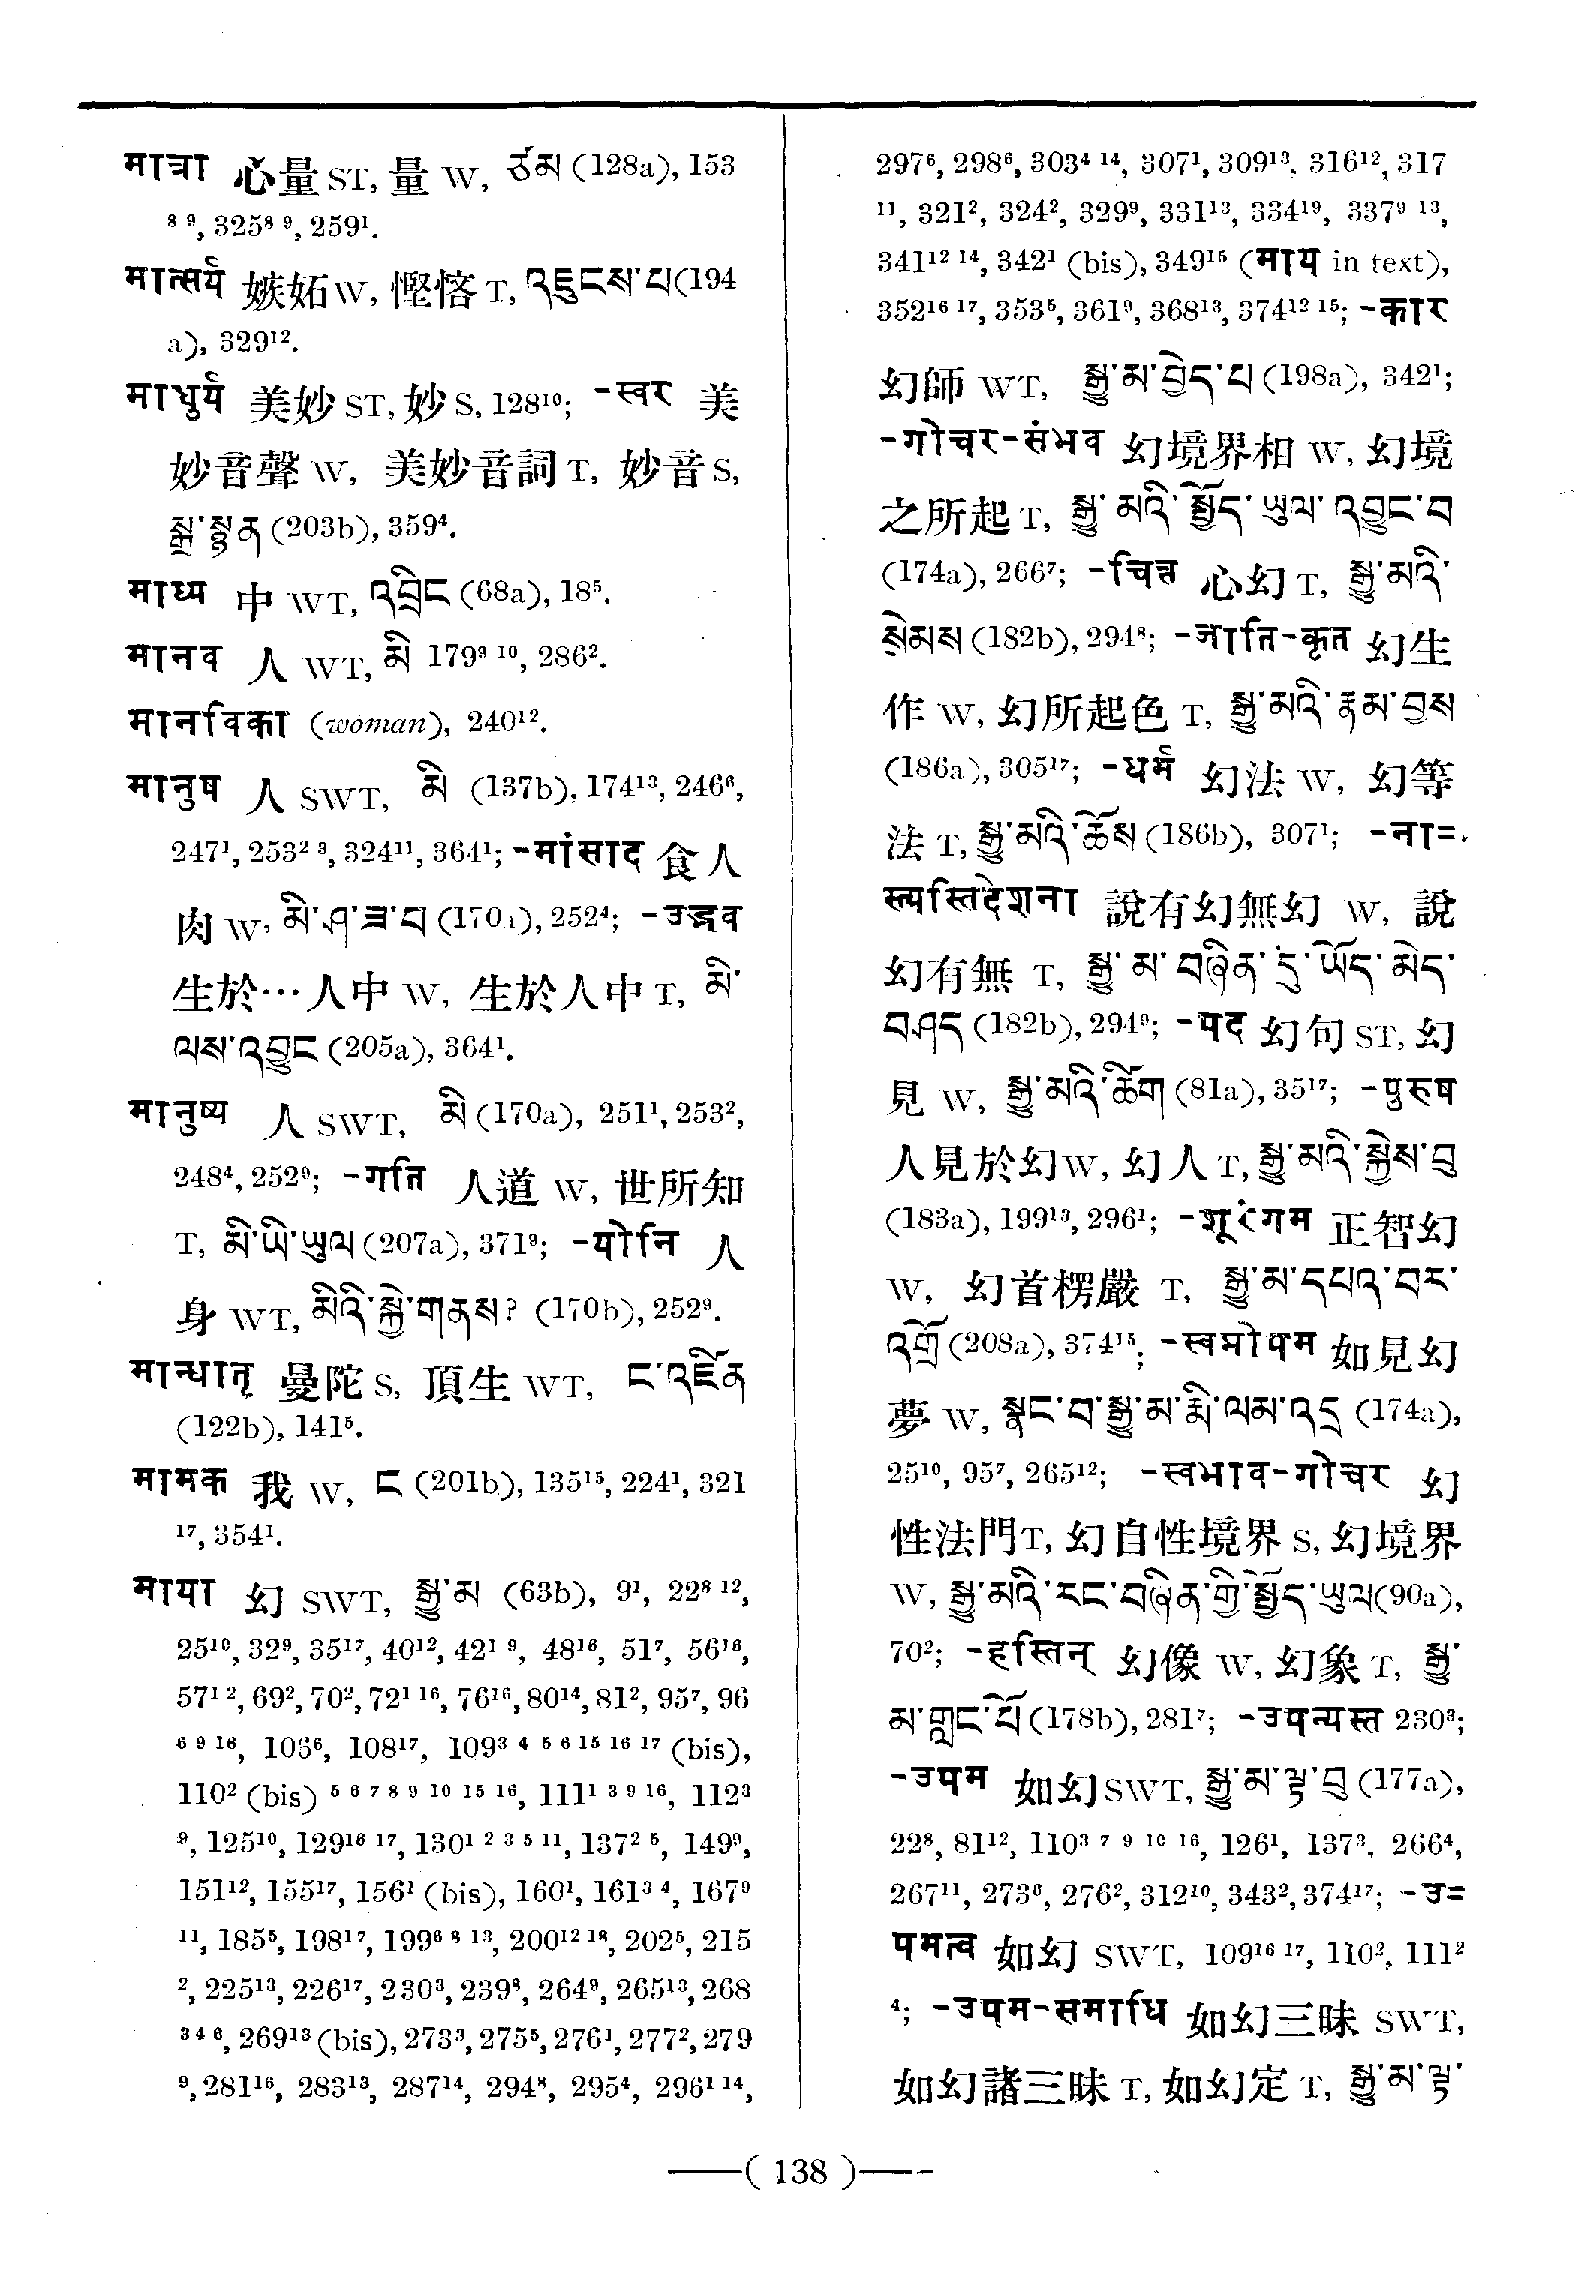 मात्रा 心量 ST, 量 W, ཙམ (128a), 153
⁸ ⁹, 325⁸ ⁹, 259¹.
मात्सर्य 嫉妬 W, 慳悋 T, འཇུངས་པ (194
a), 329¹².
माधुर्य 美妙 ST, 妙 S, 128¹⁰; -स्वर 美
妙音聲 W, 美妙音詞 T, 妙音 S,
སྒྲ་སྙན (203b), 359⁴.
माध्य 中 WT, འབྲིང (68a), 18⁵.
मानव 人 WT, མི 179⁹ ¹⁰, 286².
मानविका (woman), 240¹².
मानुष 人 SWT, མི (137b), 174¹³, 246⁶,
247¹, 253² ³, 324¹¹, 364¹; -मांसाद 食人
肉 W, མི་ཤ་ཟ་བ (170a), 252⁴; -उद्भव
生於…人中 W, 生於人中 T, མི་
ལས་འབྱུང (205a), 364¹.
मानुष्य 人 SWT, མི (170a), 251¹, 253²,
248⁴, 252⁹; -गति 人道 W, 世所知
T, མི་ཡི་ཡུལ (207a), 371⁹; -योनि 人
身 WT, མིའི་སྐྱེ་གནས? (170b), 252⁹.
मान्धातृ 曼陀 S, 頂生 WT, ང་འཛིན
(122b), 141⁵.
मामक 我 W, ང (201b), 135¹⁵, 224¹, 321
¹⁷, 354¹.
माया 幻 SWT, སྒྱུ་མ (63b), 9¹, 22⁸ ¹²,
25¹⁰, 32⁹, 35¹⁷, 40¹², 42¹ ⁹, 48¹⁶, 51⁷, 56¹⁶,
57¹ ², 69², 70², 72¹ ¹⁶, 76¹⁶, 80¹⁴, 81², 95⁷, 96
⁶ ⁹ ¹⁶, 106⁶, 108¹⁷, 109³ ⁴ ⁵ ⁶ ¹⁵ ¹⁶ ¹⁷ (bis),
110² (bis) ⁵ ⁶ ⁷ ⁸ ⁹ ¹⁰ ¹⁵ ¹⁶, 111¹ ³ ⁹ ¹⁶, 112³
⁹, 125¹⁰, 129¹⁶ ¹⁷, 130¹ ² ³ ⁵ ¹¹, 137² ⁵, 149⁹,
151¹², 155¹⁷, 156¹ (bis), 160¹, 161³ ⁴, 167⁹
¹¹, 185⁵, 198¹⁷, 199⁶ ⁸ ¹³, 200¹² ¹⁸, 202⁵, 215
², 225¹³, 226¹⁷, 230³, 239⁸, 264⁹, 265¹³, 268
³ ⁴ ⁶, 269¹³ (bis), 273³, 275⁵, 276¹, 277², 279
⁹, 281¹⁶, 283¹³, 287¹⁴, 294⁸, 295⁴, 296¹ ¹⁴,
297⁶, 298⁶, 303⁴ ¹⁴, 307¹, 309¹³, 316¹², 317
¹¹, 321², 324², 329⁹, 331¹³, 334¹⁹, 337⁹ ¹³,
341¹² ¹⁴, 342¹ (bis), 349¹⁵ (माय in text),
352¹⁶ ¹⁷, 353⁵, 361⁹, 368¹³, 374¹² ¹⁵; -कार
幻師 WT, སྒྱུ་མ་བྱེད་པ (198a), 342¹;
-गोचर-संभव 幻境界相 W, 幻境
之所起 T, སྒྱུ་མའི་སྤྱོད་ཡུལ་འབྱུང་བ
(174a), 266⁷; -चित्त 心幻 T, སྒྱུ་མའི་
སེམས (182b), 294⁸; -जाति-कृत 幻生
作 W, 幻所起色 T, སྒྱུ་མའི་རྣམ་བྱས
(186a), 305¹⁷; -धर्म 幻法 W, 幻等
法 T, སྒྱུ་མའི་ཆོས (186b), 307¹; -ना=
स्त्यस्तिदेशना 說有幻無幻 W, 說
幻有無 T, སྒྱུ་མ་བཞིན་དུ་ཡོད་མེད་
བཤད (182b), 294⁹; -पद 幻句 ST, 幻
見 W, སྒྱུ་མའི་ཚིག (81a), 35¹⁷; -पुरुष
人見於幻 W, 幻人 T, སྒྱུ་མའི་སྐྱེས་བུ
(183a), 199¹³, 296¹; -शूरंगम 正智幻
W, 幻首楞嚴 T, སྒྱུ་མ་དཔའ་བར་
འགྲོ (208a), 374¹⁵; -स्वप्नोपम 如見幻
夢 W, སྣང་བ་སྒྱུ་མ་རྨི་ལམ་འདྲ (174a),
25¹⁰, 95⁷, 265¹²; -स्वभाव-गोचर 幻
性法門 T, 幻自性境界 S, 幻境界
W, སྒྱུ་མའི་རང་བཞིན་གྱི་སྤྱོད་ཡུལ (90a),
70²; -हस्तिन् 幻像 W, 幻象 T, སྒྱུ་
མ་གླང་པོ (178b), 281⁷; -उपन्यस्त 230³;
-उपम 如幻 SWT, སྒྱུ་མ་ལྟ་བུ (177a),
22⁸, 81¹², 110³ ⁷ ⁹ ¹⁰ ¹⁶, 126¹, 137³, 266⁴,
267¹¹, 273⁶, 276², 312¹⁰, 343², 374¹⁷; -उ=
पमत्व 如幻 SWT, 109¹⁶ ¹⁷, 110², 111²
⁴; -उपम-समाधि 如幻三昧 SWT,
如幻諸三昧 T, 如幻定 T, སྒྱུ་མ་ལྟ་
( 138 )